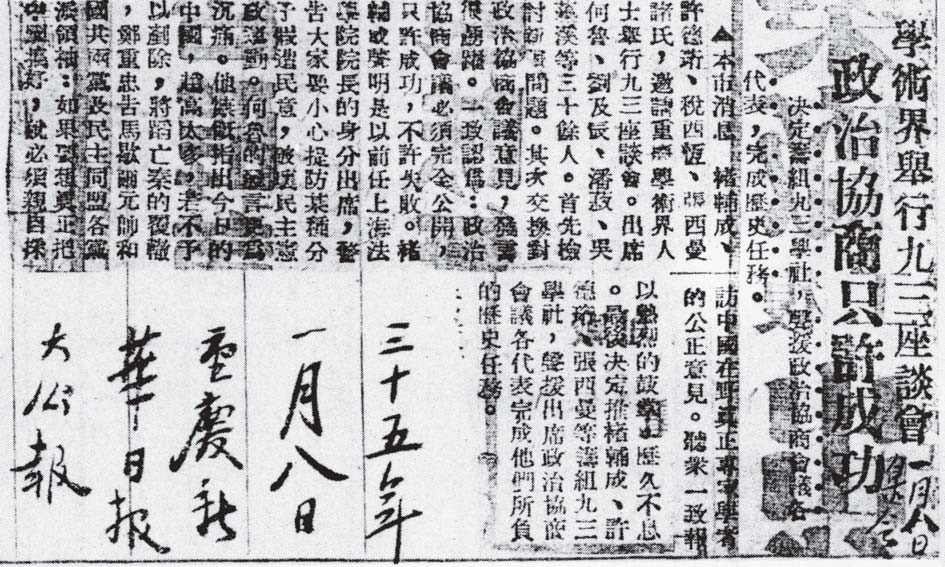 學術界舉行九三座談會
一月八日
政治協商只許成功
決定籌組九三學社，聲援政治協商會議各
代表，完成歷史任務。
▲本市消息 褚輔成、
許德珩、稅西恆、張西曼
諸氏，邀請重慶學術界人
士舉行九三座談會。出席
何魯、劉及辰、潘菽、吳
藻溪等三十餘人。首先檢
討問題。其次交換對
政治協商會議意見，發言
很踴躍。一致認爲：政治
協商會議必須完全公開，
只許成功，不許失敗。褚
輔成聲明是以前任上海法
學院院長的身分出席，警
告大家要小心提防某種分
子假造民意，破壞民主憲
政運動。何魯的發言更爲
沉痛。他慷慨指出今日的
中國，趙高太多，若不予
以剷除，將蹈亡秦的覆轍
，鄭重忠告馬歇爾元帥和
國共兩黨及民主同盟各黨
派領袖：如果要想真正把
中國弄好，就必須親自採
訪中國在野真正專家學者
的公正意見。聽衆一致報
以熱烈的鼓掌，歷久不息
。最後決定推褚輔成、許
德珩、張西曼等籌組九三
學社，聲援出席政治協商
會議各代表完成他們所負
的歷史任務。
三十五年
一月八日
重慶新
華日報
大公報